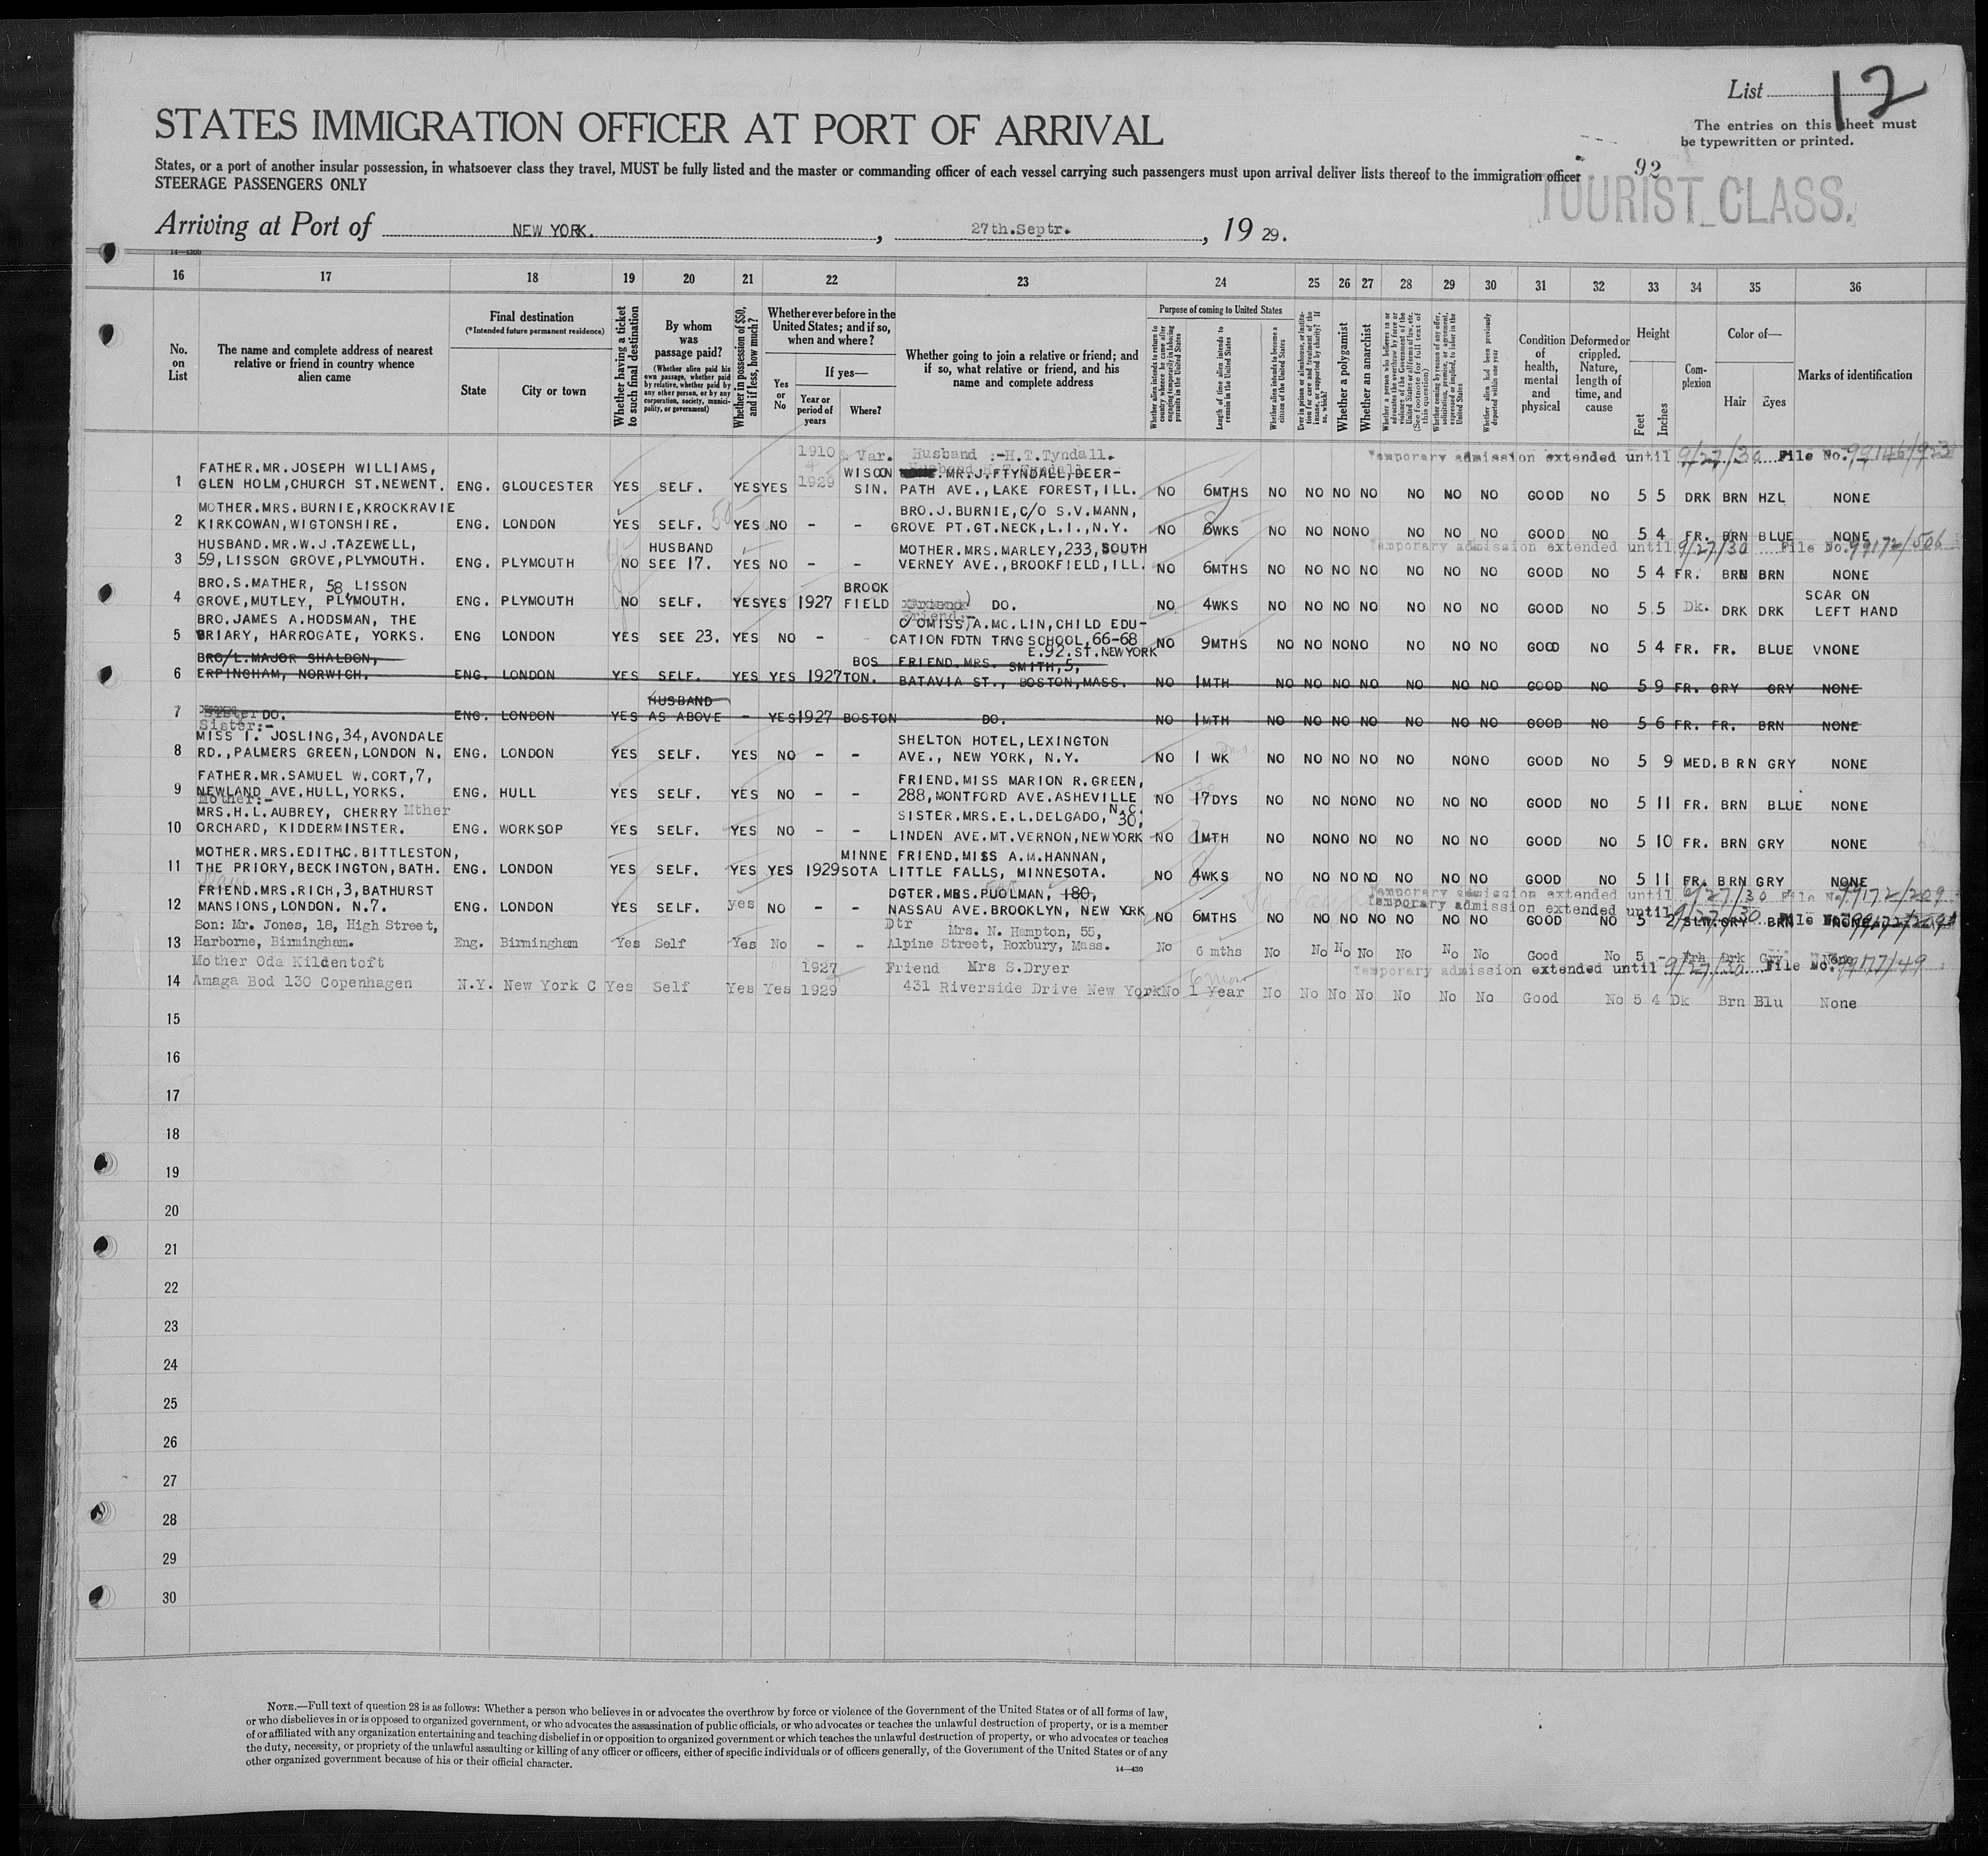 List 12
The entries on this sheet must
be typewritten or printed.
STATES IMMIGRATION OFFICER AT PORT OF ARRIVAL
92
States, or a port of another insular possession, in whatsoever class they travel, MUST be fully listed and the master or commanding officer of each vessel carrying such passengers must upon arrival deliver lists thereof to the immigration officer
STEERAGE PASSENGERS ONLY
TOURIST CLASS.
Arriving at Port of NEW YORK. , 27th.Septr. , 19 29.
16 17 18 19 20 21 22 23 24 25 26 27 28 29 30 31 32 33 34 35 36
No. on List
The name and complete address of nearest relative or friend in country whence alien came
Final destination
(*Intended future permanent residence)
State
City or town
Whether having a ticket to such final destination
By whom was passage paid?
(Whether alien paid his own passage, whether paid by relative, whether paid by any other person, or by any corporation, society, municipality, or government)
Whether in possession of $50, and if less, how much?
Whether ever before in the United States; and if so, when and where?
Yes or No
If yes—
Year or period of years
Where?
Whether going to join a relative or friend; and if so, what relative or friend, and his name and complete address
Purpose of coming to United States
Whether alien intends to return to country whence he came after engaging temporarily in laboring pursuits in the United States
Length of time alien intends to remain in the United States
Whether alien intends to become a citizen of the United States
Ever in prison or almshouse, or institution for care and treatment of the insane, or supported by charity? If so, which?
Whether a polygamist
Whether an anarchist
Whether a person who believes in or advocates the overthrow by force or violence of the Government of the United States or all forms of law, etc. (See footnote for full text of this question)
Whether coming by reason of any offer, solicitation, promise, or agreement, expressed or implied, to labor in the United States
Whether alien had been previously deported within one year
Condition of health, mental and physical
Deformed or crippled. Nature, length of time, and cause
Height
Feet
Inches
Complexion
Color of—
Hair
Eyes
Marks of identification
1910 & Var. Husband :-H.T.Tyndall. Temporary admission extended until 9/27/30 File No. 99146/923
FATHER.MR.JOSEPH WILLIAMS, WISON MR.J.F.TYNDALL,DEER-
1 GLEN HOLM,CHURCH ST.NEWENT. ENG. GLOUCESTER YES SELF. YES YES 1929 SIN. PATH AVE.,LAKE FOREST,ILL. NO 6MTHS NO NO NO NO NO NO NO GOOD NO 5 5 DRK BRN HZL NONE
MOTHER.MRS.BURNIE,KROCKRAVIE BRO.J.BURNIE,C/O S.V.MANN,
2 KIRKCOWAN,WIGTONSHIRE. ENG. LONDON YES SELF. 50 YES NO - - GROVE PT.GT.NECK,L.I.,N.Y. NO 6WKS NO NO NO NO NO NO NO GOOD NO 5 4 FR. BRN BLUE NONE
Temporary admission extended until 9/27/30 File No. 99172/506
HUSBAND.MR.W.J.TAZEWELL, HUSBAND MOTHER.MRS.MARLEY,233,SOUTH
3 59,LISSON GROVE,PLYMOUTH. ENG. PLYMOUTH NO SEE 17. YES NO - - VERNEY AVE.,BROOKFIELD,ILL. NO 6MTHS NO NO NO NO NO NO NO GOOD NO 5 4 FR. BRN BRN NONE
BRO.S.MATHER, 58,LISSON BROOK SCAR ON
4 GROVE,MUTLEY, PLYMOUTH. ENG. PLYMOUTH NO SELF. YES YES 1927 FIELD DO. NO 4WKS NO NO NO NO NO NO NO GOOD NO 5 5 Dk. DRK DRK LEFT HAND
Friend:-
BRO.JAMES A.HODSMAN, THE C/OMISS A.MC.LIN,CHILD EDU-
5 BRIARY, HARROGATE, YORKS. ENG LONDON YES SEE 23. YES NO - CATION FDTN TRNG SCHOOL,66-68 NO 9MTHS NO NO NO NO NO NO NO GOOD NO 5 4 FR. FR. BLUE NONE
E.92.ST.NEWYORK
BRO/L.MAJOR SHALDON, BOS FRIEND.MRS. SMITH,5,
6 ERPINGHAM, NORWICH. ENG. LONDON YES SELF. YES YES 1927 TON. BATAVIA ST., BOSTON,MASS. NO 1MTH NO NO NO NO NO NO NO GOOD NO 5 9 FR. GRY GRY NONE
HUSBAND
7 DO. ENG. LONDON YES AS ABOVE - YES 1927 BOSTON DO. NO 1MTH NO NO NO NO NO NO NO GOOD NO 5 6 FR. FR. BRN NONE
Sister:-
MISS I. JOSLING,34,AVONDALE SHELTON HOTEL,LEXINGTON
8 RD.,PALMERS GREEN,LONDON N. ENG. LONDON YES SELF. YES NO - - AVE., NEW YORK, N.Y. NO 1 WK NO NO NO NO NO NO NO GOOD NO 5 9 MED. BRN GRY NONE
FATHER.MR.SAMUEL W.CORT,7, FRIEND.MISS MARION R.GREEN,
9 NEWLAND AVE.HULL,YORKS. ENG. HULL YES SELF. YES NO - - 288,MONTFORD AVE.ASHEVILLE NO 17DYS NO NO NO NO NO NO NO GOOD NO 5 11 FR. BRN BLUE NONE
Mother:- N.C.
MRS.H.L.AUBREY, CHERRY Mther SISTER.MRS.E.L.DELGADO, 30,
10 ORCHARD, KIDDERMINSTER. ENG. WORKSOP YES SELF. YES NO - - LINDEN AVE.MT.VERNON,NEWYORK NO 1MTH NO NO NO NO NO NO NO GOOD NO 5 10 FR. BRN GRY NONE
MOTHER.MRS.EDITH.C.BITTLESTON, MINNE FRIEND.MISS A.M.HANNAN,
11 THE PRIORY,BECKINGTON,BATH. ENG. LONDON YES SELF. YES YES 1929 SOTA LITTLE FALLS, MINNESOTA. NO 4WKS NO NO NO NO NO NO NO GOOD NO 5 11 FR. BRN GRY NONE
Temporary admission extended until 9/27/30 File No. 99172/209
FRIEND.MRS.RICH,3,BATHURST DGTER.MRS.PUOLMAN, 180, Temporary admission extended until 9/27/30 File No. 99172/209
12 MANSIONS,LONDON. N.7. ENG. LONDON YES SELF. yes NO - - NASSAU AVE.BROOKLYN, NEW YRK NO 6MTHS NO NO NO NO NO NO NO GOOD NO 5 2 SLW. GRY BRN NONE
Son: Mr. Jones, 18, High Street, Dtr Mrs. N. Hampton, 55,
13 Harborne, Birmingham. Eng. Birmingham Yes Self Yes No - - Alpine Street, Roxbury, Mass. No 6 mths No No No No No No No Good No 5 - Frh Drk Gry None
Mother Oda Kildentoft 1927 Friend Mrs S.Dryer 6 mos Temporary admission extended until 9/27/30 File No. 99177/49
14 Amaga Bod 130 Copenhagen N.Y. New York C Yes Self Yes Yes 1929 431 Riverside Drive New York No 1 Year No No No No No No No Good No 5 4 Dk Brn Blu None
15
16
17
18
19
20
21
22
23
24
25
26
27
28
29
30
NOTE.—Full text of question 28 is as follows: Whether a person who believes in or advocates the overthrow by force or violence of the Government of the United States or of all forms of law,
or who disbelieves in or is opposed to organized government, or who advocates the assassination of public officials, or who advocates or teaches the unlawful destruction of property, or is a member
of or affiliated with any organization entertaining and teaching disbelief in or opposition to organized government or which teaches the unlawful destruction of property, or who advocates or teaches
the duty, necessity, or propriety of the unlawful assaulting or killing of any officer or officers, either of specific individuals or of officers generally, of the Government of the United States or of any
other organized government because of his or their official character.
14—430